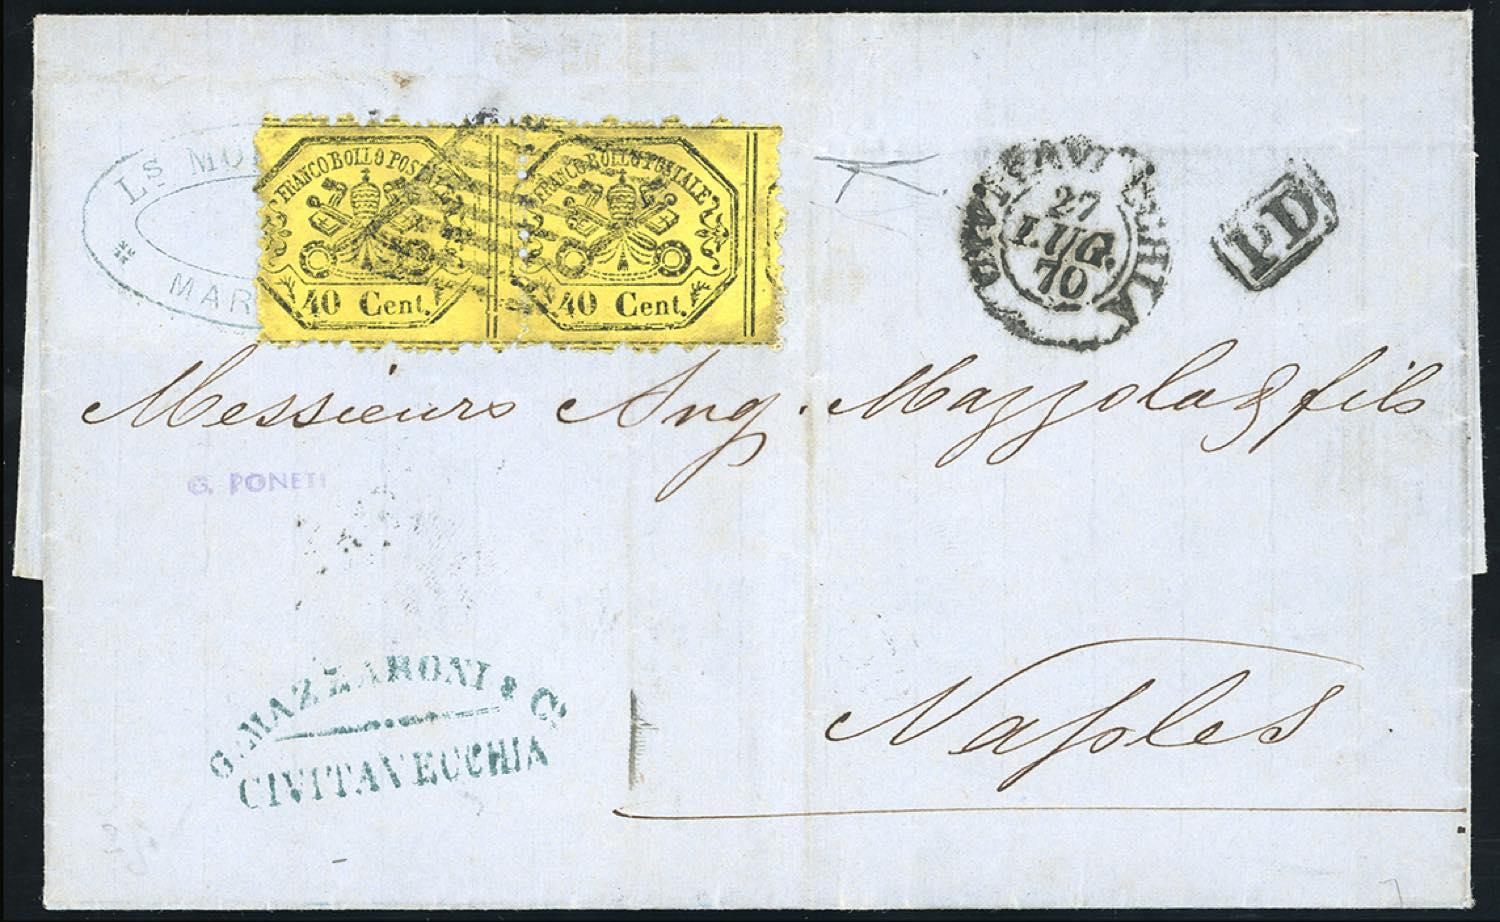 Ls MO
MAR
FRANCO BOLLO POSTALE
40 Cent.
FRANCO BOLLO POSTALE
40 Cent.
CIVITAVECCHIA
27
LUG.
70
PD
Messieurs Ang. Mazzola & fils
G. PONETI
Naples
G. MAZZARONI & C.
CIVITAVECCHIA